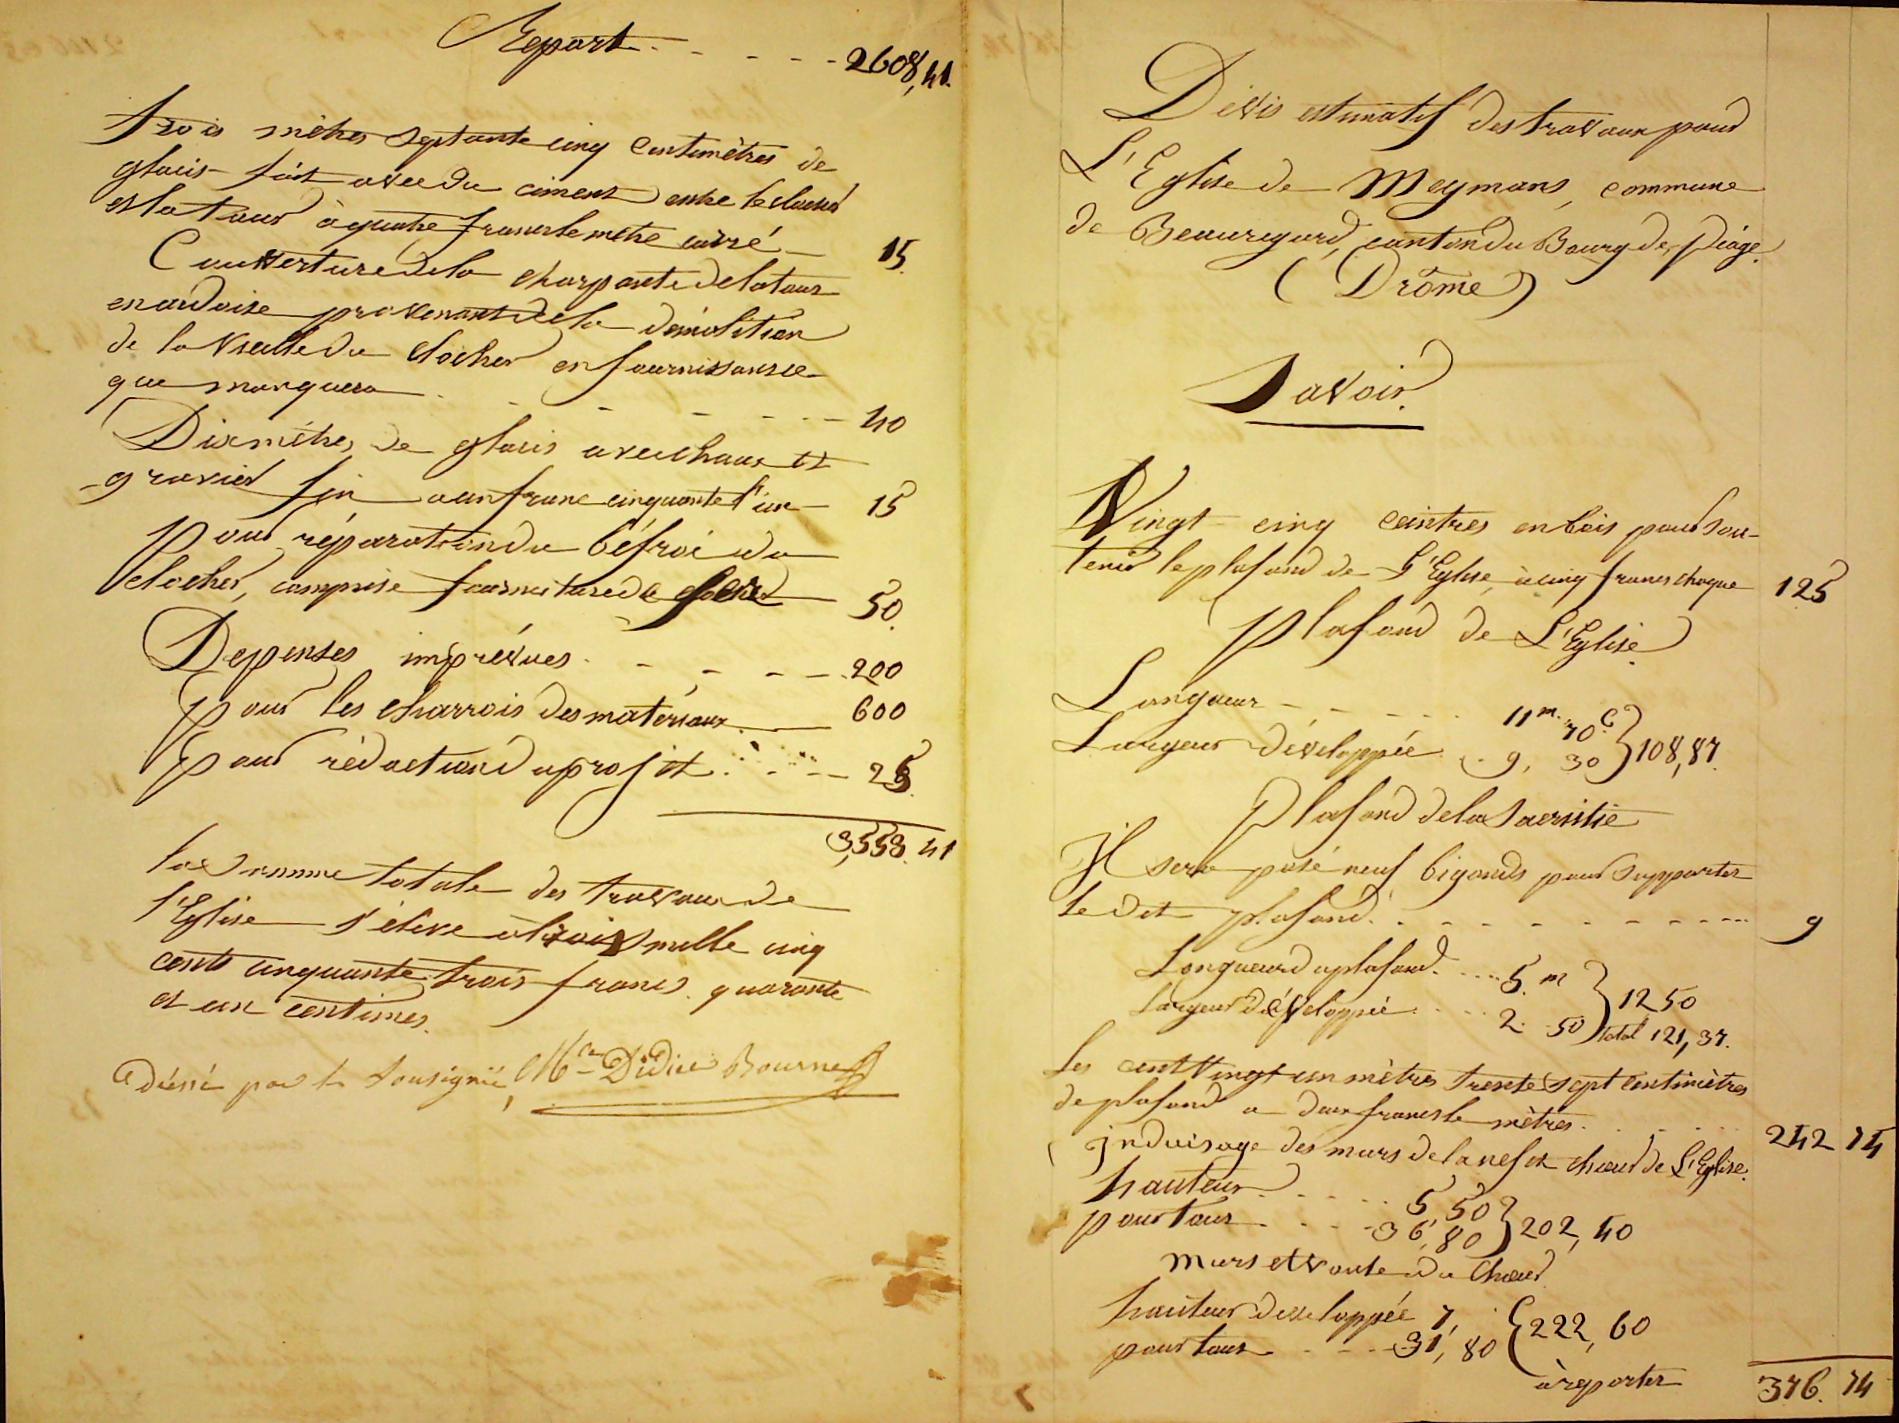 Report - - - - 2608,41.
trois mètres septante cinq centimètres de
glacis fait avec du ciment entre le clocher
et la tour à quatre francs le mètre carré - 15.
Couverture de la charpente de la tour
en ardoise provenant de la démolition
de la vieille du clocher en fournissant ce
que manquera - - - - 40
Dix mètres de glacis avec chaux et
gravier fin a un franc cinquante l'un - 15
pour réparation du béfroi du
clocher, comprise fourniture de 50.
Depenses imprévues - - - - 200
pour les charrois des matériaux 600
pour rédaction du projet - - - 25.
3,553.41
la somme totale des travaux de
l'Eglise s'élève à trois mille cinq
cents cinquante trois francs quarante
et un centimes.
Dréssé par le Sousignié, Didier Bournet
Dévis estimatif des travaux pour
L'Eglise de Meymans, commune
de Beauregard, canton du Bourg de péage.
(Drôme)
Savoir.
Vingt cinq ceintres en bois pour sou-
tenir le plafond de L'Eglise, à cinq francs chaque 125
plafond de L'Eglise.
Longueur - - - - 11m. 70c
Largeur développée . 9, 30 } 108,81.
Plafond de la Sacristie
Il sera posé neuf bigonds pour supporter
le dit plafond. - - - - - - 9
Longueur du plafond. .... 5.m
largeur développée .... 2. 50 } 12 50
total 121,37.
Les cent vingt un mètres trente sept centimètres
de plafond a deux francs le mètres. 242 74
induisage des murs de la nef et chœur de L'Eglise.
hauteur - - - - 5 50
pourtour - - - 36,80 } 202,40
Murs et voute du Chœur
hauteur développée 7,
pourtour - - - 31,80 { 222,60
à reporter 376. 74